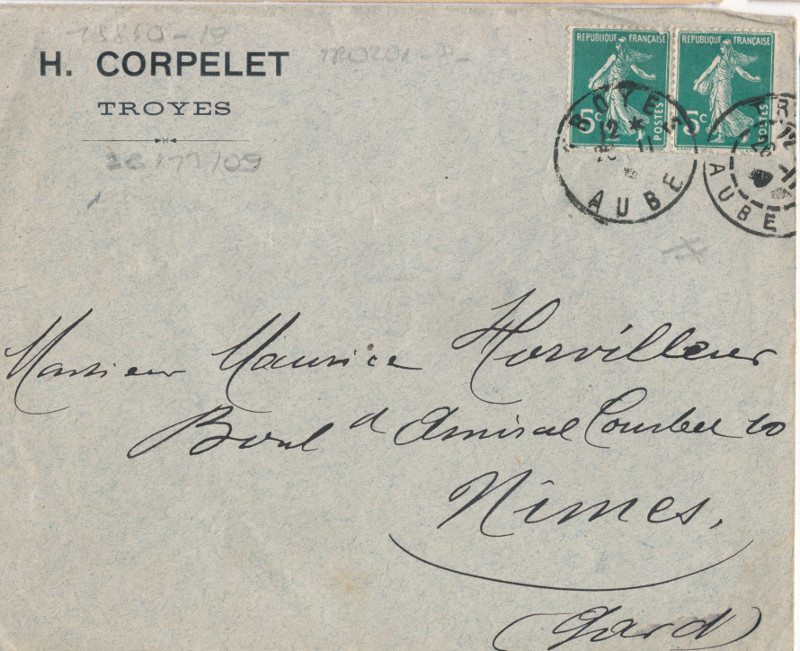 H. CORPELET
TROYES
REPUBLIQUE FRANÇAISE
5c
POSTES
REPUBLIQUE FRANÇAISE
5c
POSTES
TROYES
12
26
11
AUBE
12
26
AUBE
26/11/09
Monsieur Maurice Horvilleur
Boul d Amiral Courbet 10
Nîmes,
(Gard)